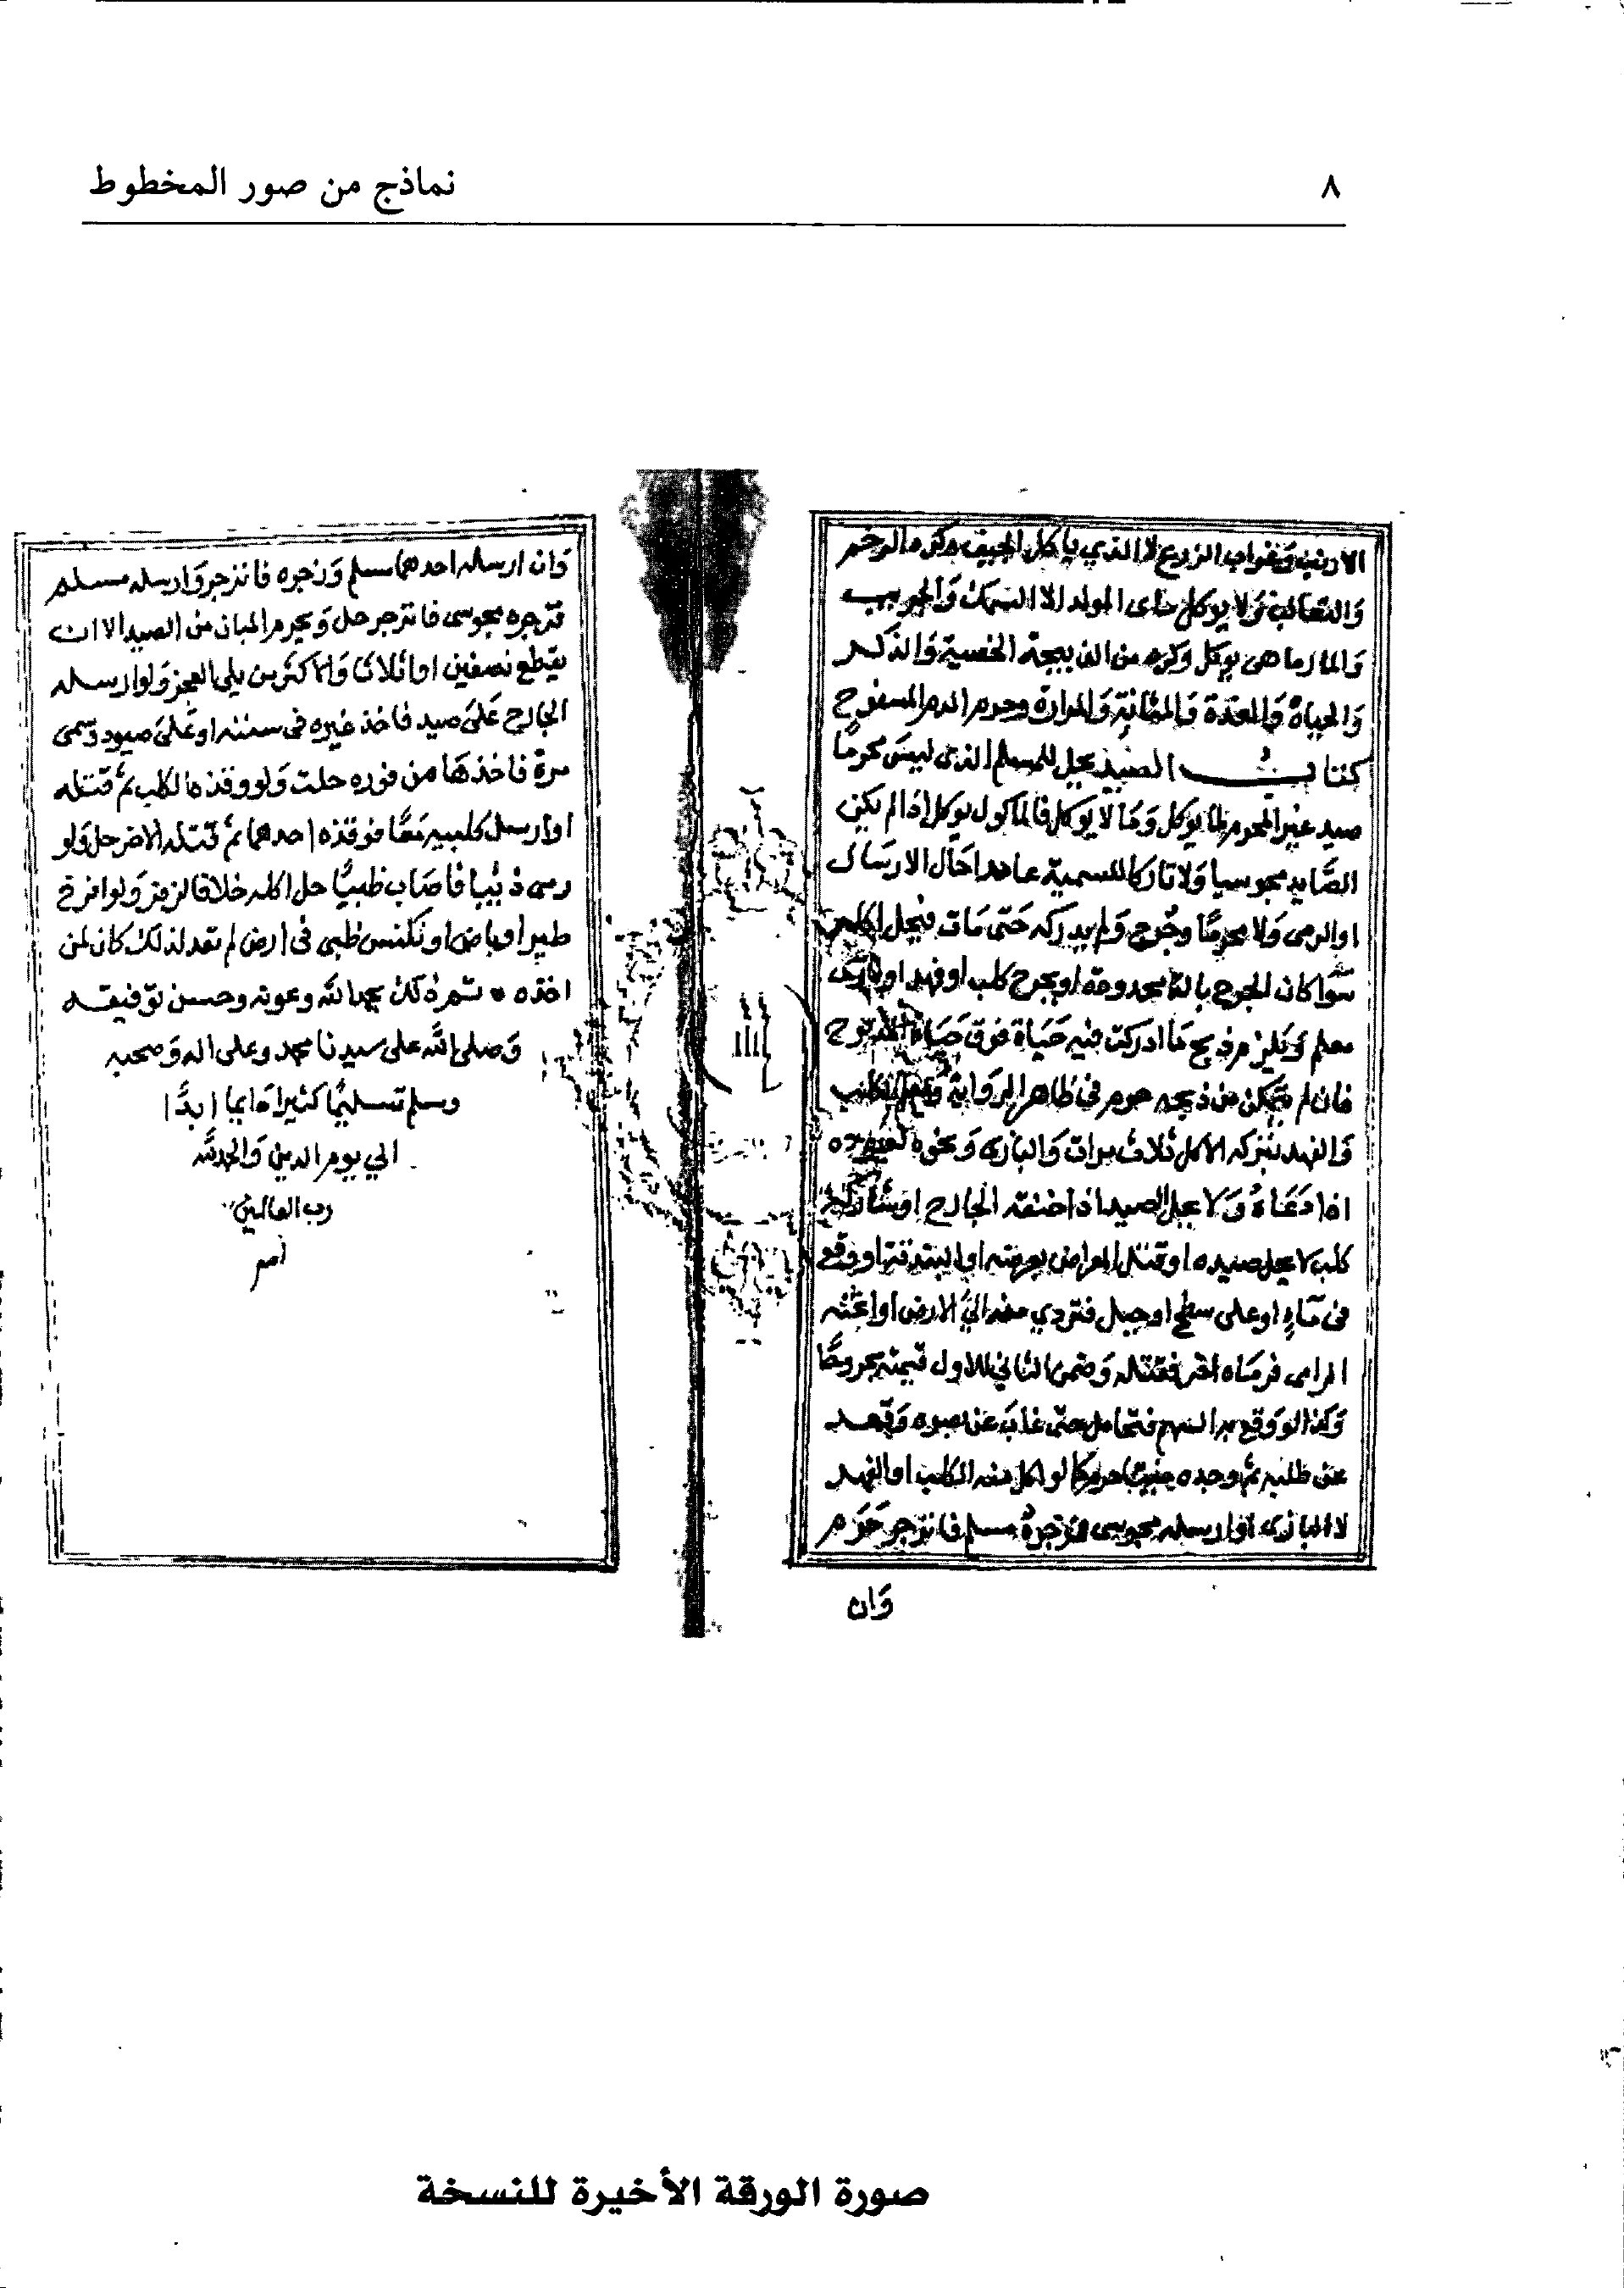 ٨
نماذج من صور المخطوط
الارنب وغراب الزرع لا الذي ياكل الجيف وكره الرخم
والثعالب ولا يوكل حاى المولد الا السمك والجريب
والمارماهى يوكل وكره من الذبيحة الخصية والذكر
والحياة والغدة والمثانة والمرارة وحرم الدم المسفوح
كتاب الصيد يحل للمسلم الذى ليس محرما
صيد غير المحرم لما يوكل وما لا يوكل فالماكول يوكل اذا لم يكن
الصايد مجوسيا ولا تاركا للتسمية عامدا حال الارسال
او الرمى ولا محرما وجرح ولم يدركه حتى مات فيحل اكله
سوا كان الجرح بالة محدودة او بجرح كلب او فهد او بازى
معلم ويلزم ذبح ما ادركت فيه حياة فوق حياة المذبوح
فان لم يتمكن من ذبحه حرم فى ظاهر الرواية الكلب
والفهد بتركه الاكل ثلاث مرات والبازى ونحوه
اذا دعاه ولا يحل الصيد اذا خنقه الجارح او شاركه
كلب لا يحل صيده او قتل المعراض بعرضه او البندقة او وقع
فى ماء او على سطح او جبل فتردي منه الى الارض او اثخنه
الرامى فرماه اخر فقتله وضمن الثاني للاول قيمته مجروحا
وكذا لو وقع به السهم فتحامل حتى غاب عن بصره وقعد
عن طلبه ثم وجده ميتا حرم كما لو اكل منه الكلب او الفهد
لا البازى او ارسله مجوسى فزجره مسلم فانزجر حرم
وان
وان ارسله احدهما مسلم وزجره فانزجر وارسله مسلم
فزجره مجوسى فانزجر حل ويحرم المبان من الصيد الا ان
يقطع نصفين او اثلاثا والاكثر من يلى العجز ولو ارسله
الجارح على صيد فاخذ غيره فى سننه او على صيود وسمى
مرة فاخذها من فوره حلت ولو وقذه الكلب ثم قتله
او ارسل كلبيه معا فوقذه احدهما ثم قتله الاخر حل ولو
رمى ذئبا فاصاب ظبيا حل اكله خلافا لزفر ولو افرخ
طير او باض او تكنس ظبى فى ارض لم تعد لذلك كان لمن
اخذه • تم ذلك بحمد الله وعونه وحسن توفيقه
وصلى الله على سيدنا محمد وعلى اله وصحبه
وسلم تسليما كثيرا دايما ابدا
الي يوم الدين والحمد لله
رب العالمين
امين
صورة الورقة الأخيرة للنسخة